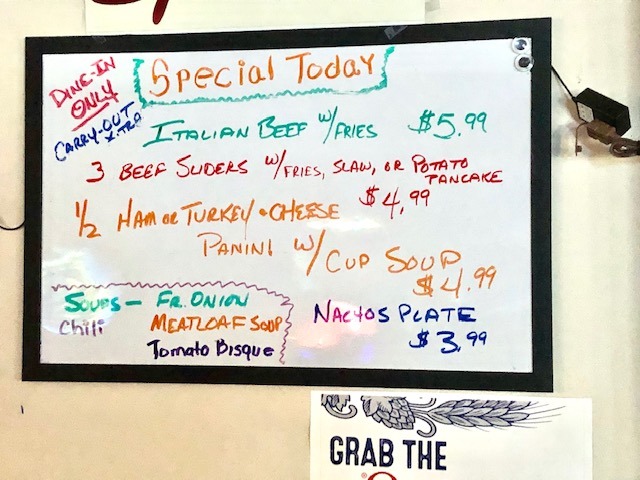 DINE-IN
ONLY
CARRY-OUT
X-TRA
Special Today
ITALIAN BEEF W/FRIES $5.99
3 BEEF SLIDERS W/FRIES, SLAW, OR POTATO
PANCAKE
$4,99
1/2 HAM OR TURKEY & CHEESE
PANINI W/ CUP SOUP
$4.99
SOUPS - FR. ONION
Chili MEATLOAF SOUP
Tomato Bisque
NACHOS PLATE
$3.99
GRAB THE